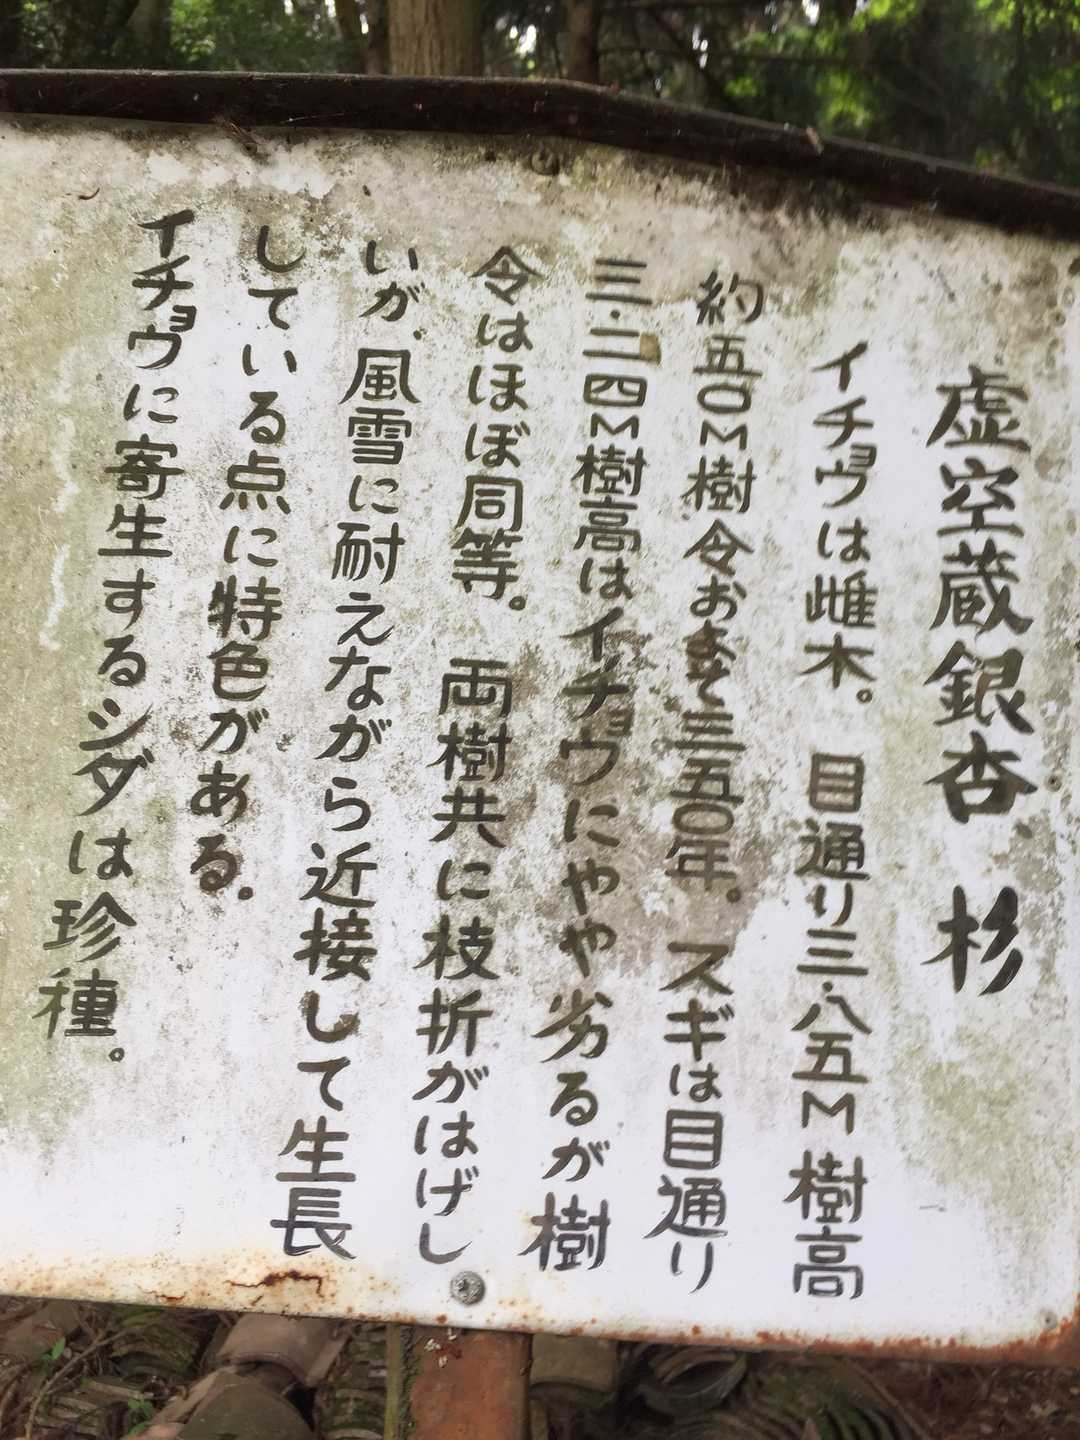 虚空蔵銀杏、杉
イチョウは雌木。目通り三・八五M樹高
約五〇M樹令およそ三五〇年。スギは目通り
三・二四M樹高はイチョウにやや劣るが樹
令はほぼ同等。両樹共に枝折がはげし
いが、風雪に耐えながら近接して生長
している点に特色がある。
イチョウに寄生するシダは珍種。